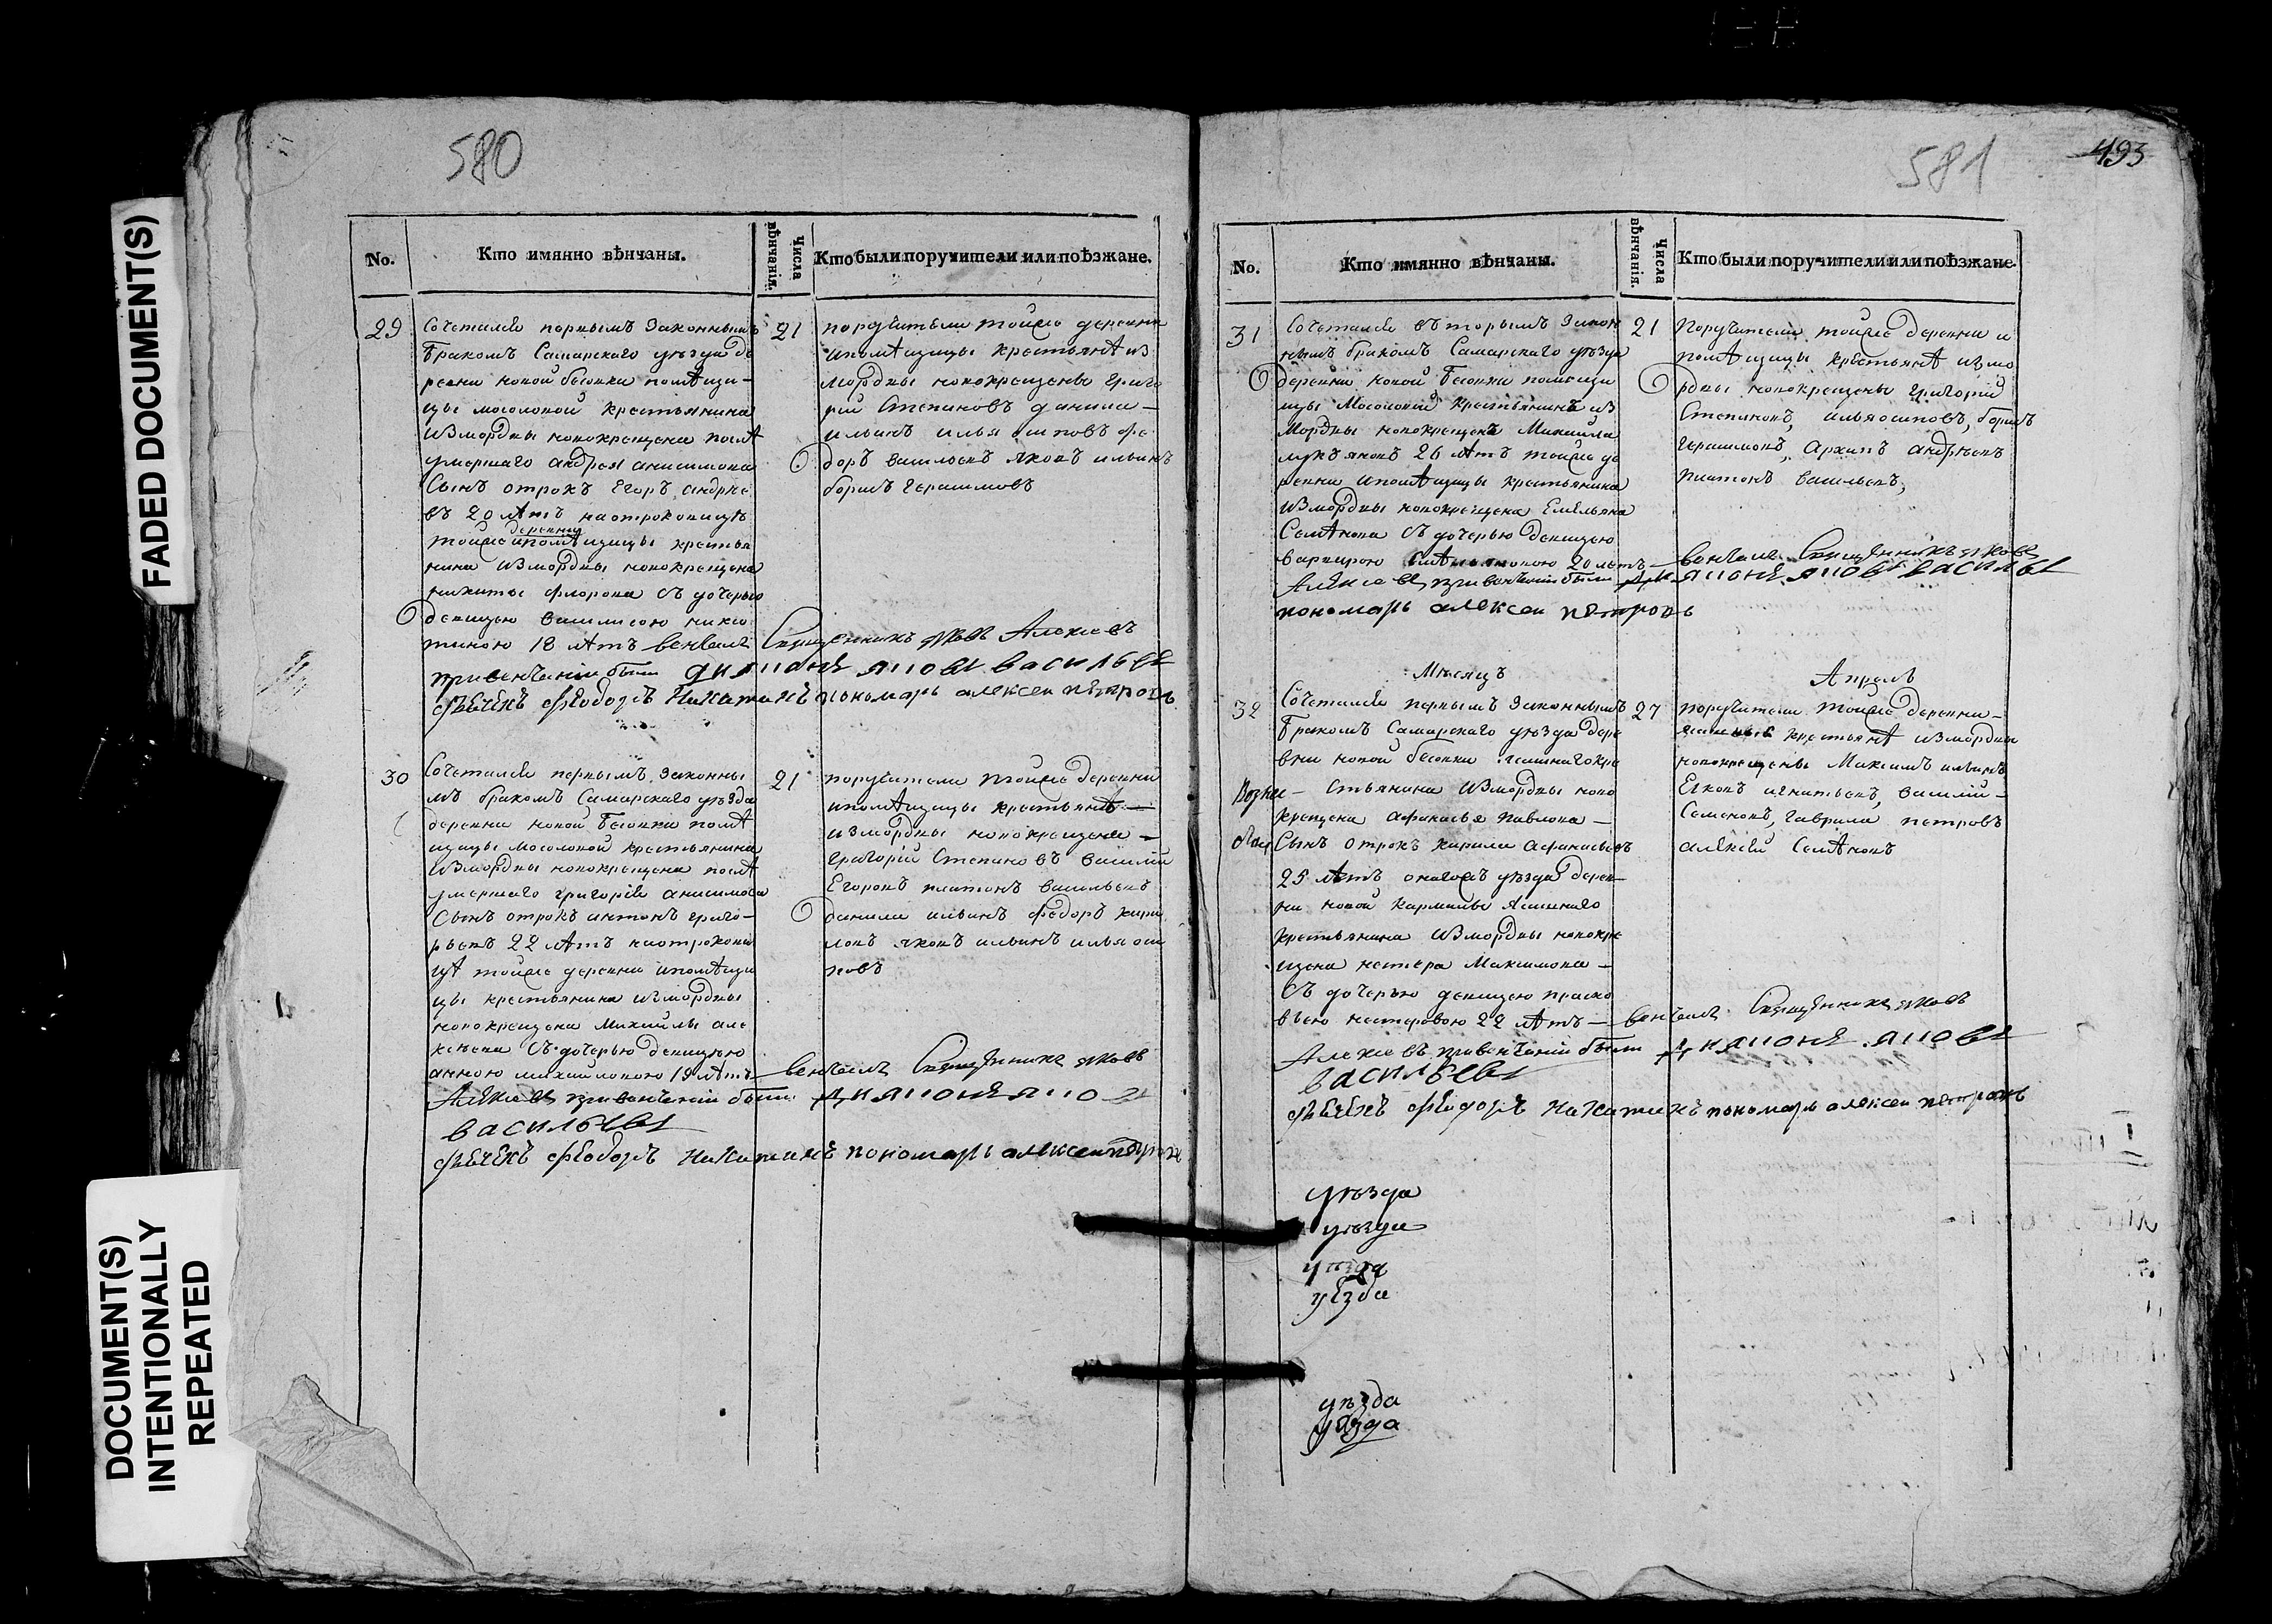 FADED DOCUMENT(S)
DOCUMENT(S)
INTENTIONALLY
REPEATED
580
No.
Кто имянно вѣнчаны.
Числа
вѣнчанія.
Кто были поручители или поѣзжане.
29
Сочетался первымъ законнымъ
бракомъ Самарскаго уѣзда де
ревни новой бесовки помѣщи-
цы мосоловой крестьянина
измордвы новокрещена послѣ
умершаго андрея анисимова
Сынъ отрокъ Егоръ андрѣе
въ 20 лѣтъ наотроковицѣ
деревни
тойже ипомѣщицы крестья
нина измордвы новокрещена
никиты флорова съ дочерью
девицею василисою ники
тиною 18 лѣтъ венчалъ Священникъ яковъ Алексѣевъ
привенчаніи были диячокъ яковъ васильевъ
федоръ Никитинъ пономарь алексеи петровъ
21
поручители тойже деревни
ипомѣщицы крестьянѣ из
мордвы новокрещены григо
рій Степановъ данила-
ильинъ илья осиповъ фе
доръ васильевъ яковъ ильинъ
борисъ герасимовъ
30
Сочетался первымъ законны
мъ бракомъ Самарскаго уѣзда
деревни новой бесовки помѣ
щицы мосоловой крестьянина
измордвы новокрещена послѣ
умершаго григорія анисимова
Сынъ отрокъ антонъ григо-
рьевъ 22 лѣтъ наотрокови
цѣ тойже деревни ипомѣщи
цы крестьянина измордвы
новокрещена михайлы але
ксѣева съ дочерью девицею
анною михайловою 19 лѣтъ венчалъ Священникъ яковъ
Алексѣевъ привенчаніи были
васильевъ
федоръ Никитинъ пономарь алексеи петровъ
21
поручители тойже деревни
ипомѣщицы крестьянѣ-
измордвы новокрещены-
григорій Степановъ василий
Егоровъ платонъ васильевъ
данила ильинъ федоръ кири
ловъ яковъ ильинъ илья оси
повъ
581
493
No.
Кто имянно вѣнчаны.
Числа
вѣнчанія.
Кто были поручители или поѣзжане.
31
Сочетался вторымъ закон
нымъ бракомъ Самарскаго уѣзда
деревни новой бесовки помещи
цы Мосоловой крестьянинъ из
мордвы новокрещенъ Михайла
лукъяновъ 26 лѣтъ тойже де
ревни ипомѣщицы крестьянина
измордвы новокрещена Емельяна
Семѣнова съ дочерью девицею
варварою 20 летъ- венчалъ Священникъ яковъ
Алексѣевъ привенчаніи были васильевъ
пономарь алексеи петровъ
21
Поручители тойже деревни и
помѣщицы крестьянѣ измо
рдвы новокрещены григорій
Степановъ, илья осиповъ, борисъ
герасимовъ, Архипъ андрѣевъ
платонъ васильевъ,
Мѣсяцъ
Апрель
32
Сочетался первымъ законнымъ
бракомъ Самарскаго уѣзда дере
вни новой бесовки кре
стьянина измордвы ново
крещена афанасья павлова-
Сынъ отрокъ кирила афанасьевъ
25 лѣтъ онагожъ уѣзда дерев-
ни новой кармалы
крестьянина измордвы новокре
щена нестера Максимова-
съ дочерью девицею праско
вьею нестеровою 22 лѣтъ- венчалъ Священникъ яковъ
Алексѣевъ привенчаніи были
васильевъ
федоръ Никитинъ пономарь алексеи петровъ
27
поручители тойже деревни-
крестьянѣ измордвы
новокрещены Максимъ ильинъ
игнатьевъ, василій-
Семеновъ, гаврила петровъ
алексей Семѣновъ
уѣзда
уѣзда
уѣзда
уѣзда
уѣзда
уѣзда